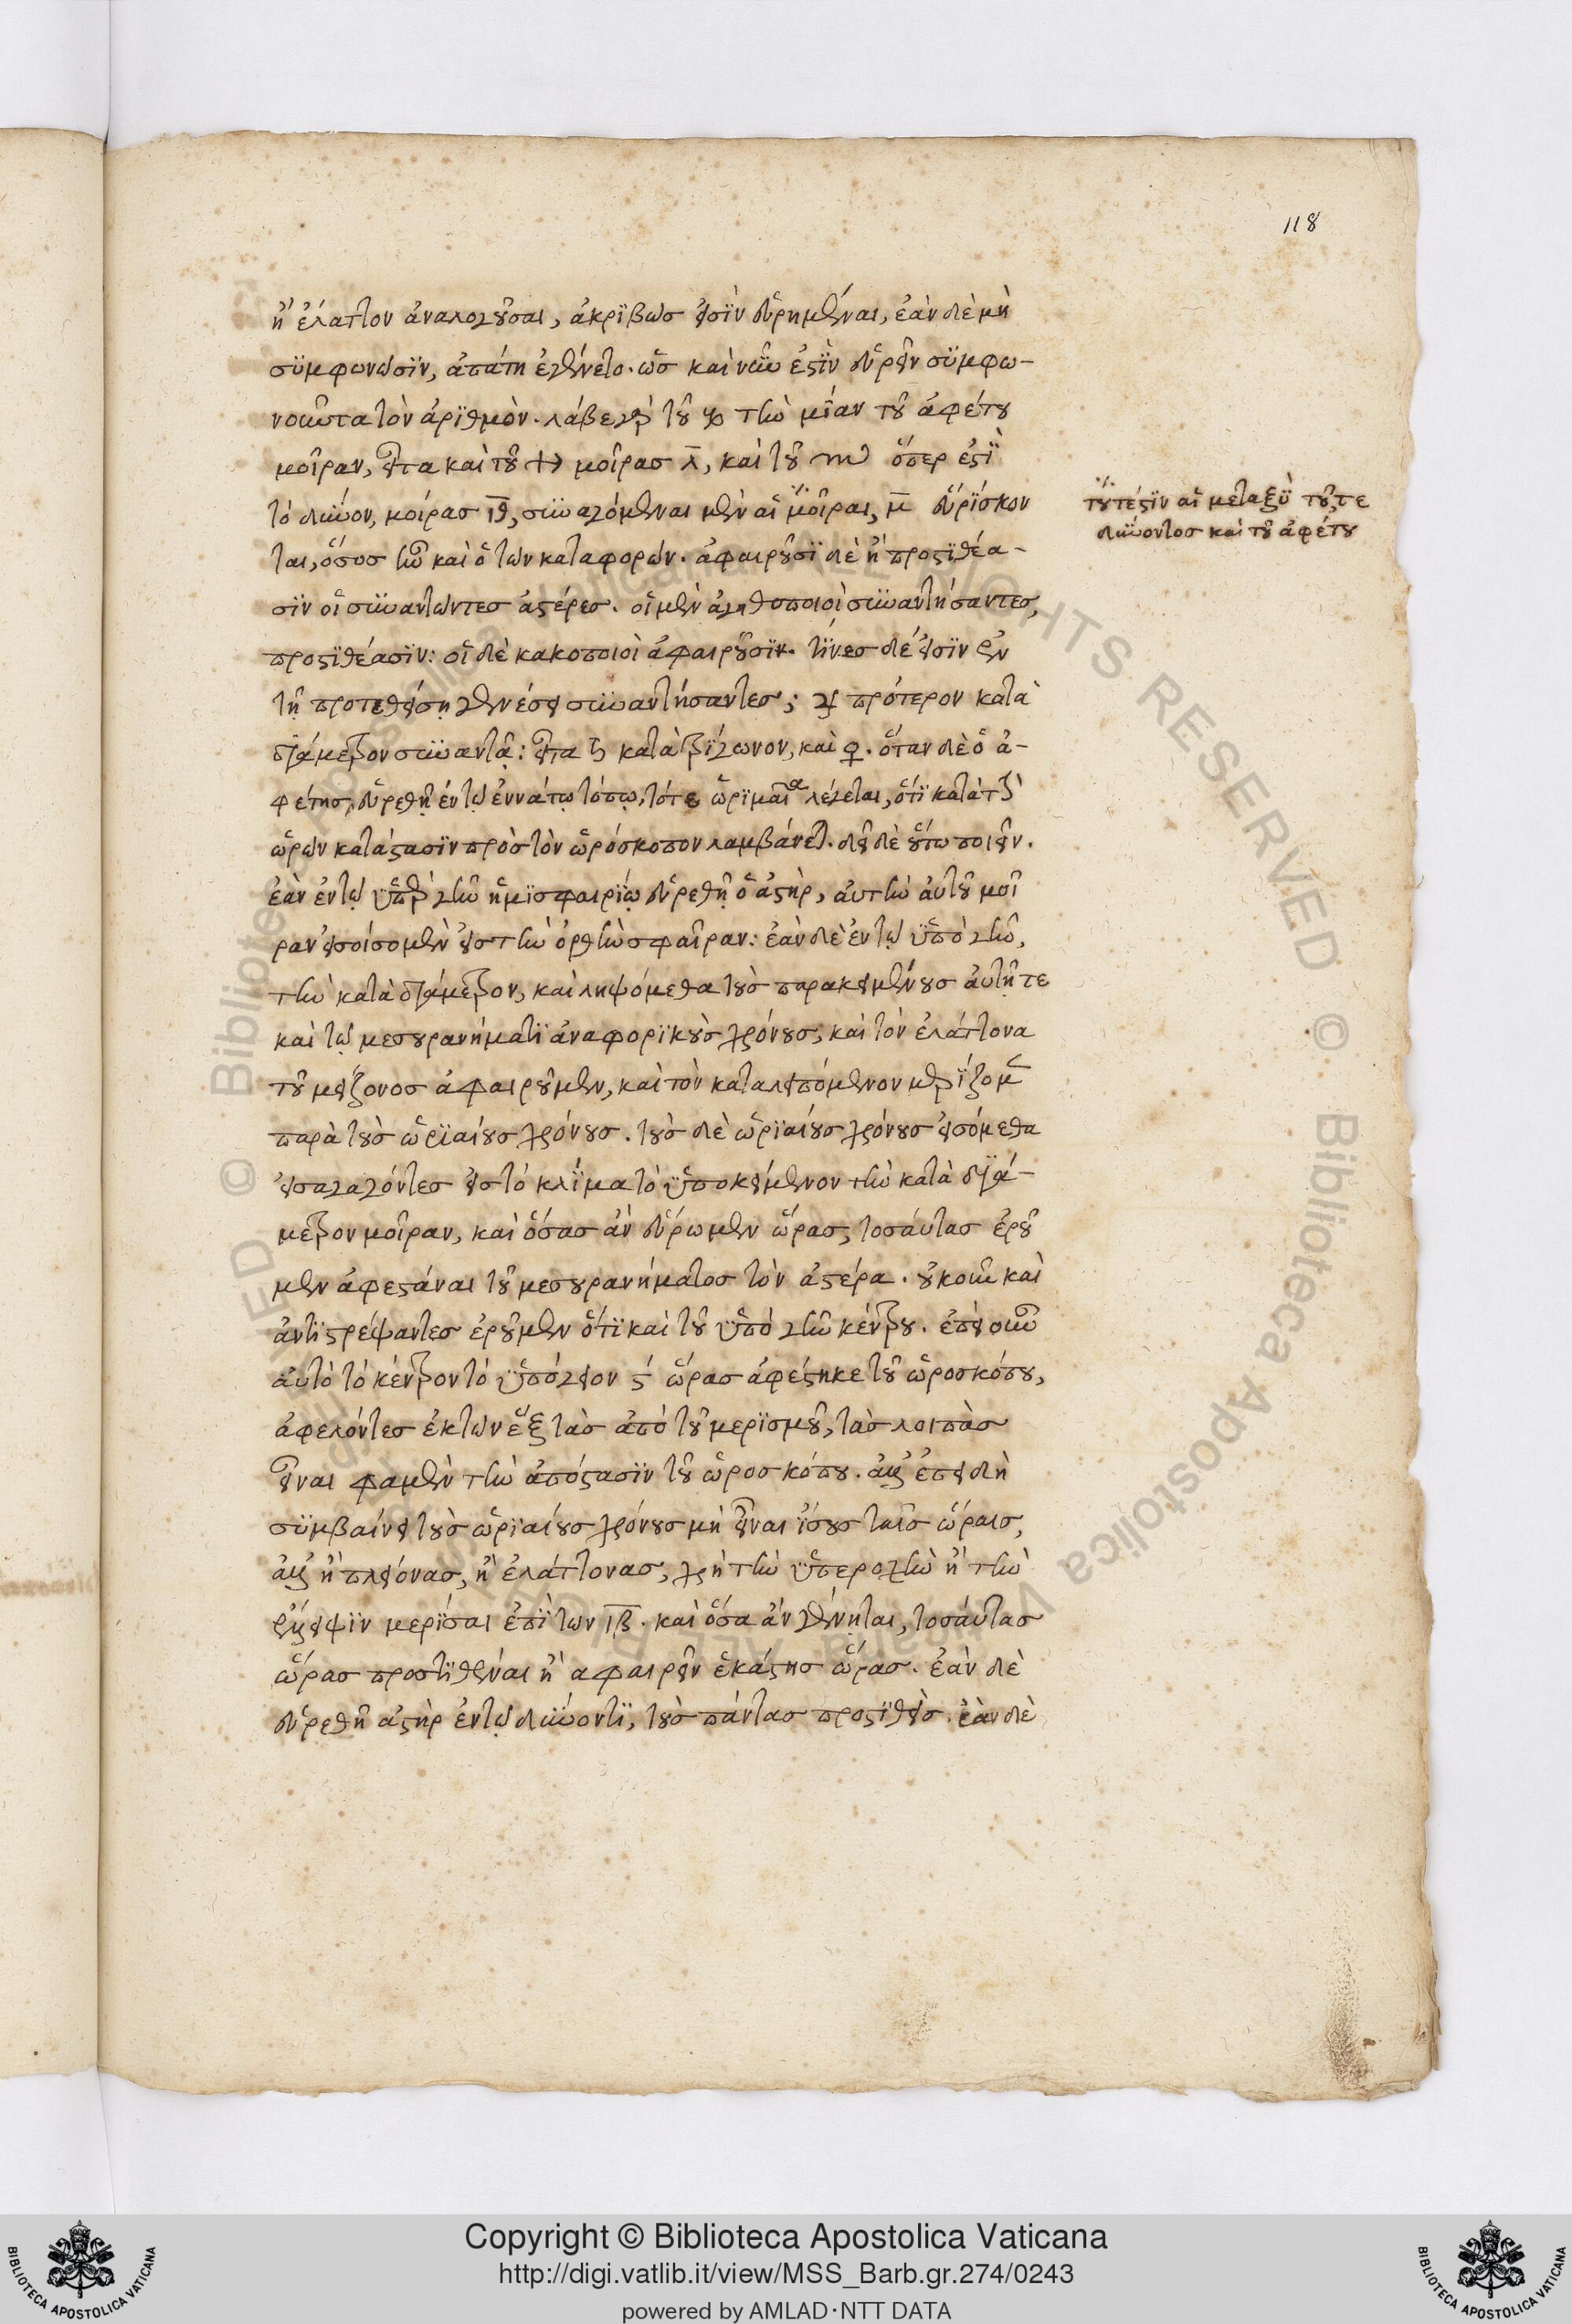 118
ἢ ἐλάττον ἀναλογοῦσαι, ἀκριβῶσ εἰσὶν εὑρημέναι, ἐὰν δὲ μὴ
συμφωνῶσιν, ἀπάτη ἐγένετο. ὡσ καὶ νῦν ἐστὶν εὑρεῖν συμφω-
νοῦντα τὸν ἀριθμὸν. λάβε γὰρ τοῦ ♑ τὴν μίαν τοῦ ἀφέτου
μοῖραν, εἶτα καὶ τοῦ ♐ μοίρασ λ, καὶ τοῦ ♏ ὅπερ ἐστὶ
τὸ δῦνον, μοίρασ ιθ, συναγόμεναι μὲν αἱ μοῖραι, μ εὑρίσκον
ται, ὅσοσ ἦν καὶ ὁ τῶν καταφορῶν. ἀφαιροῦσι δὲ ἢ προστιθέα-
σιν οἱ συναντῶντεσ ἀστέρεσ. οἱ μὲν ἀγαθοποιοὶ συναντήσαντεσ,
προστιθέασιν: οἱ δὲ κακοποιοὶ ἀφαιροῦσιν. τίνεσ δέ εἰσιν ἐν
τῇ προτεθείσῃ γενέσει συναντήσαντεσ; ♃ πρότερον κατὰ
διάμετρον συναντᾷ: εἶτα ♄ κατὰ τρίγωνον, καὶ ♀. ὅταν δὲ ὁ ἀ-
φέτησ, εὑρεθῇ ἐν τῷ ἐννάτῳ τόπῳ, τότε ὡριμαία λέγεται, ὅτι κατὰ τὴν
ὡρῶν κατάστασιν πρὸσ τὸν ὡρόσκοπον λαμβάνεται. δεῖ δὲ οὕτω ποιεῖν.
ἐὰν ἐν τῷ ὑπὲρ γῆν ἡμισφαιρίῳ εὑρεθῇ ὁ ἀστὴρ, αὐτὴν αὐτοῦ μοῖ
ραν εἰσοίσομεν εἰσ τὴν ὀρθὴν σφαῖραν: ἐὰν δὲ ἐν τῷ ὑπὸ γῆν,
τὴν κατὰ διάμετρον, καὶ ληψόμεθα τοὺσ παρακειμένουσ αὐτῇ τε
καὶ τῷ μεσουρανήματι ἀναφορικοὺσ χρόνουσ, καὶ τὸν ἐλάττονα
τοῦ μείζονοσ ἀφαιροῦμεν, καὶ τὸν καταλειπόμενον μερίζομεν
παρὰ τοὺσ ὡριαίουσ χρόνουσ. τοὺσ δὲ ὡριαίουσ χρόνουσ εἰσόμεθα
εἰσαγαγόντεσ εἰσ τὸ κλίμα τὸ ὑποκείμενον τὴν κατὰ διά-
μετρον μοῖραν, καὶ ὅσασ ἂν εὕρωμεν ὥρασ, τοσαύτασ ἐροῦ
μεν ἀφεστάναι τοῦ μεσουρανήματοσ τὸν ἀστέρα. οὐκοῦν καὶ
ἀντιστρέψαντεσ ἐροῦμεν ὅτι καὶ τοῦ ὑπὸ γῆν κέντρου. ἐπεὶ οὖν
αὐτὸ τὸ κέντρον τὸ ὑπόγειον ϛ ὥρασ ἀφέστηκε τοῦ ὡροσκόπου,
ἀφελόντεσ ἐκ τῶν ἓξ τὰσ ἀπὸ τοῦ μερισμοῦ, τὰσ λοιπὰσ
εἶναι φαμὲν τὴν ἀπόστασιν τοῦ ὡροσκόπου. ἀλλ' ἐπειδὴ
συμβαίνει τοὺσ ὡριαίουσ χρόνουσ μὴ εἶναι ἴσουσ ταῖσ ὥραισ,
ἀλλ' ἢ πλείονασ, ἢ ἐλάττονασ, χρὴ τὴν ὑπεροχὴν ἢ τὴν
ἔλλειψιν μερίσαι ἐπὶ τῶν ιβ. καὶ ὅσα ἂν γένηται, τοσαύτασ
ὥρασ προστιθέναι ἢ αφαιρεῖν ἑκάστησ ὥρασ. ἐὰν δὲ
εὑρεθῇ ἀστὴρ ἐν τῷ δύνοντι, τοὺσ πάντασ προστιθεὶσ. ἐὰν δὲ
τουτέστιν αἱ μεταξὺ τοῦ τε
δύνοντοσ καὶ τοῦ ἀφέτου
© Biblioteca Apostolica Vaticana. ALL RIGHTS RESERVED
Copyright © Biblioteca Apostolica Vaticana
http://digi.vatlib.it/view/MSS_Barb.gr.274/0243
powered by AMLAD·NTT DATA
BIBLIOTECA APOSTOLICA VATICANA
BIBLIOTECA APOSTOLICA VATICANA